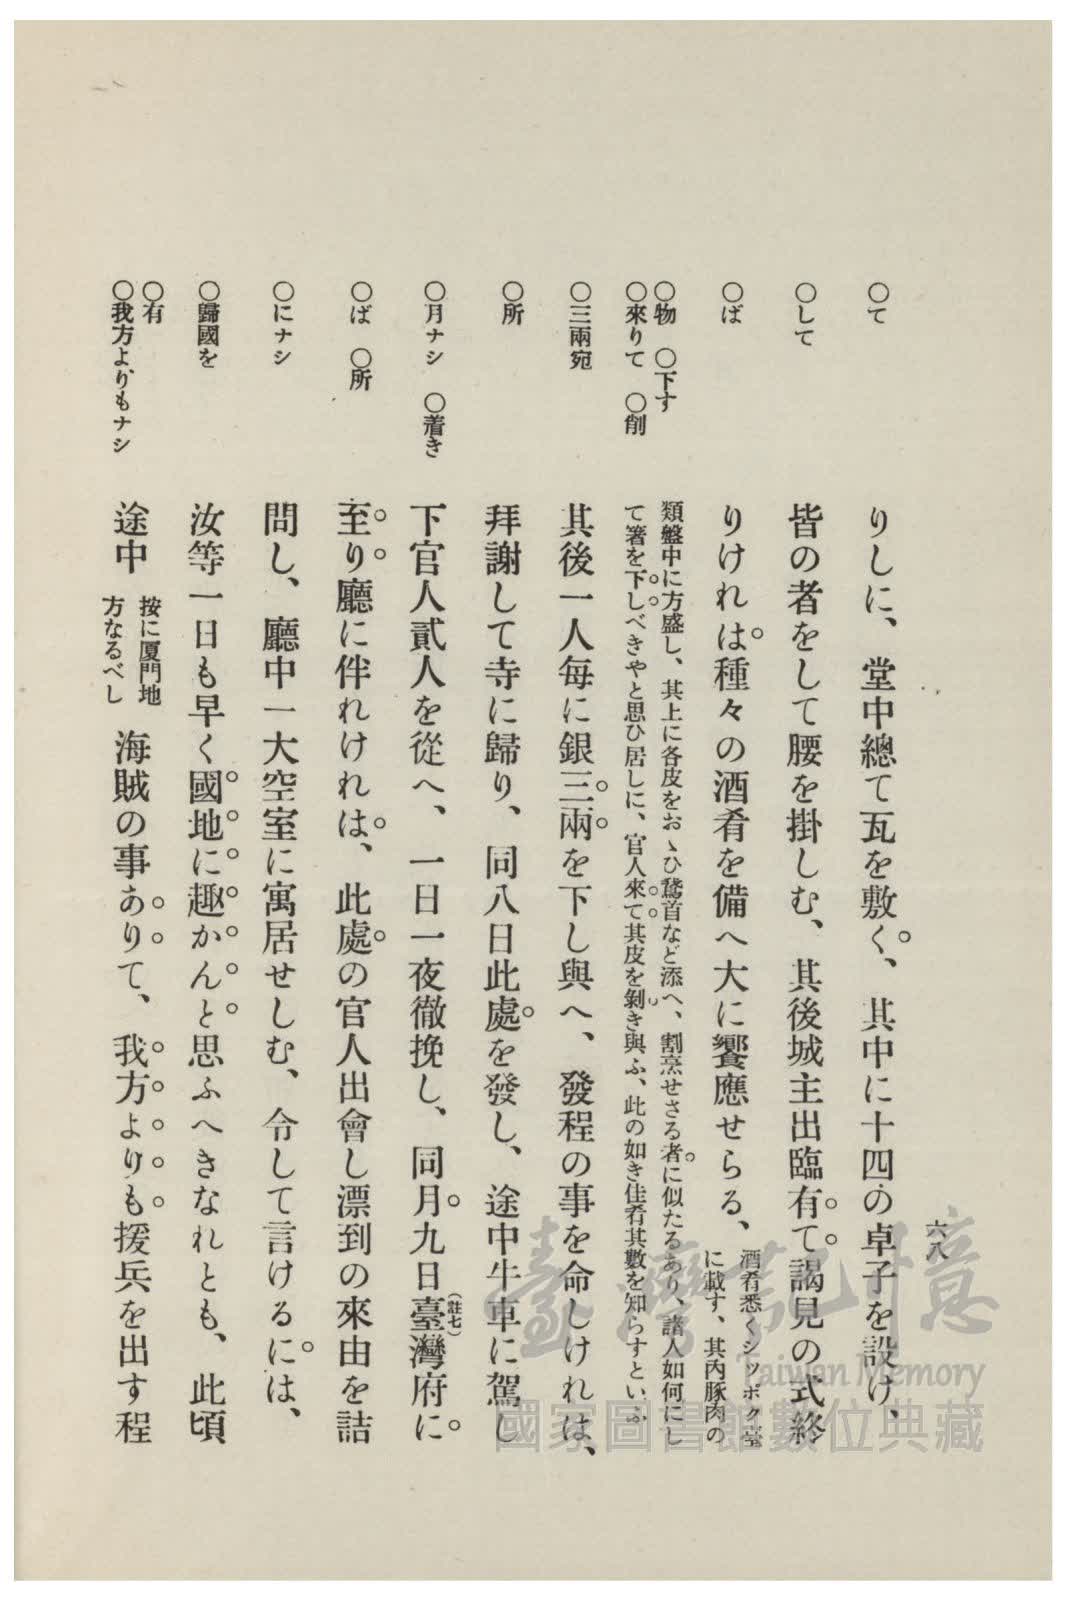 六八
○て
りしに、堂中總て瓦を敷く、其中に十四の卓子を設け、
○して
皆の者をして腰を掛しむ、其後城主出臨有て謁見の式終
○ば
りけれは種々の酒肴を備へ大に饗應せらる、
酒肴悉くシツポク臺
に載す、其內豚肉の
○物 ○下す
類盤中に方盛し、其上に各皮をおゝひ鵞首など添へ、割烹せさる者に似たるあり、諸人如何にし
○來りて ○削
て箸を下しべきやと思ひ居しに、官人來て其皮を剝き與ふ、此の如き佳肴其數を知らすといふ
○三兩宛
其後一人每に銀三兩を下し與へ、發程の事を命しけれは、
○所
拜謝して寺に歸り、同八日此處を發し、途中牛車に駕し
○月ナシ ○着き
下官人貳人を從へ、一日一夜徹挽し、同月九日臺灣府に
(註七)
○ば ○所
至り廳に伴れけれは、此處の官人出會し漂到の來由を詰
○にナシ
問し、廳中一大空室に寓居せしむ、令して言けるには、
○歸國を
汝等一日も早く國地に趣かんと思ふへきなれとも、此頃
○有
○我方よりもナシ
途中
按に厦門地
方なるべし
海賊の事ありて、我方よりも援兵を出す程
臺灣記憶
Taiwan Memory
國家圖書館數位典藏